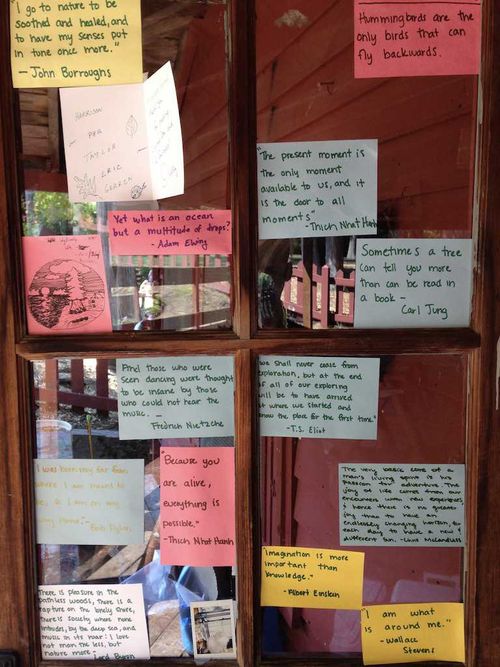 "I go to nature to be
soothed and healed, and
to have my senses put
in tune once more."
- John Burroughs
Hummingbirds are the
only birds that can
fly backwards.
HARRISON
TAYLOR
ERIC
"The present moment is
the only moment
available to us, and it
is the door to all
moments"
- Thich Nhat Hanh
Yet what is an ocean
but a multitude of drops?
- Adam Ewing
Sometimes a tree
can tell you more
than can be read in
a book -
Carl Jung
And those who were
seen dancing were thought
to be insane by those
who could not hear the
music. -
Fredrich Nietzche
We shall never cease from
exploration, but at the end
of all of our exploring
will be to have arrived
at where we started and
know the place for the first time."
- T.S. Eliot
"Because you
are alive,
everything is
possible."
- Thich Nhat Hanh
I was born very far from
where I am meant to
be, so I am on my
way home. - Bob Dylan
The very basic core of a
man's living spirit is his
passion for adventure. The
joy of life comes from our
encounters with new experiences
& hence there is no great-
joy than to have an
endlessly changing horizon, for
each day to have a new &
different sun. - Chris McCandless
Imagination is more
important than
knowledge."
- Albert Einstein
There is pleasure in the
pathless woods, there is a
rapture on the lonely shore,
there is society where none
intrudes, by the deep sea, and
music in its roar: I love
not man the less, but
nature more. Lord Byron
"I am what
is around me."
- Wallace
Stevens